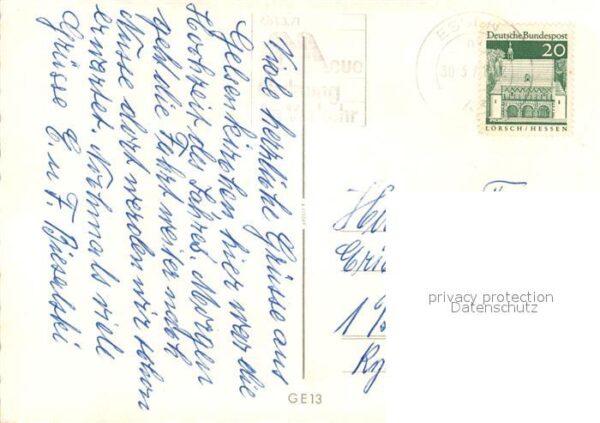 Viele herzliche Grüsse aus
Gelsenkirchen hier war die
Hochzeit des Jahres. Morgen
geht die Fahrt weiter nach
dort werden wir schon
erwartet. Nochmals viele
Grüsse E. u. F. Bieselski
Deutsche Bundespost
20
LORSCH / HESSEN
30.5.7
1
GE13
privacy protection
Datenschutz